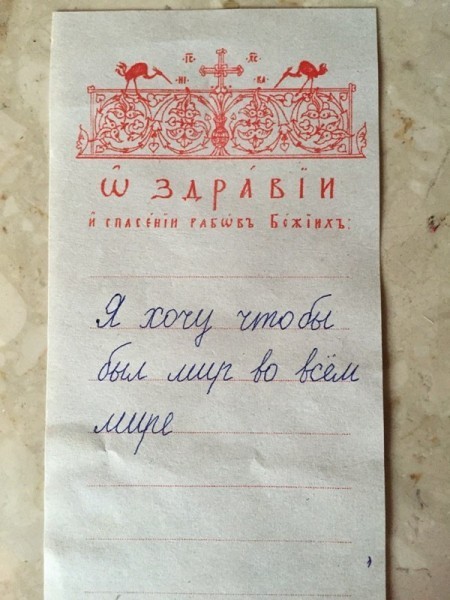 І҃С Х҃С
НІ КА
Ѡ ЗДРА́ВІИ
И҆ СПАСЕ́НІИ РАБѠ́ВЪ БО́ЖІИХЪ:
Я хочу чтобы
был мир во всём
мире